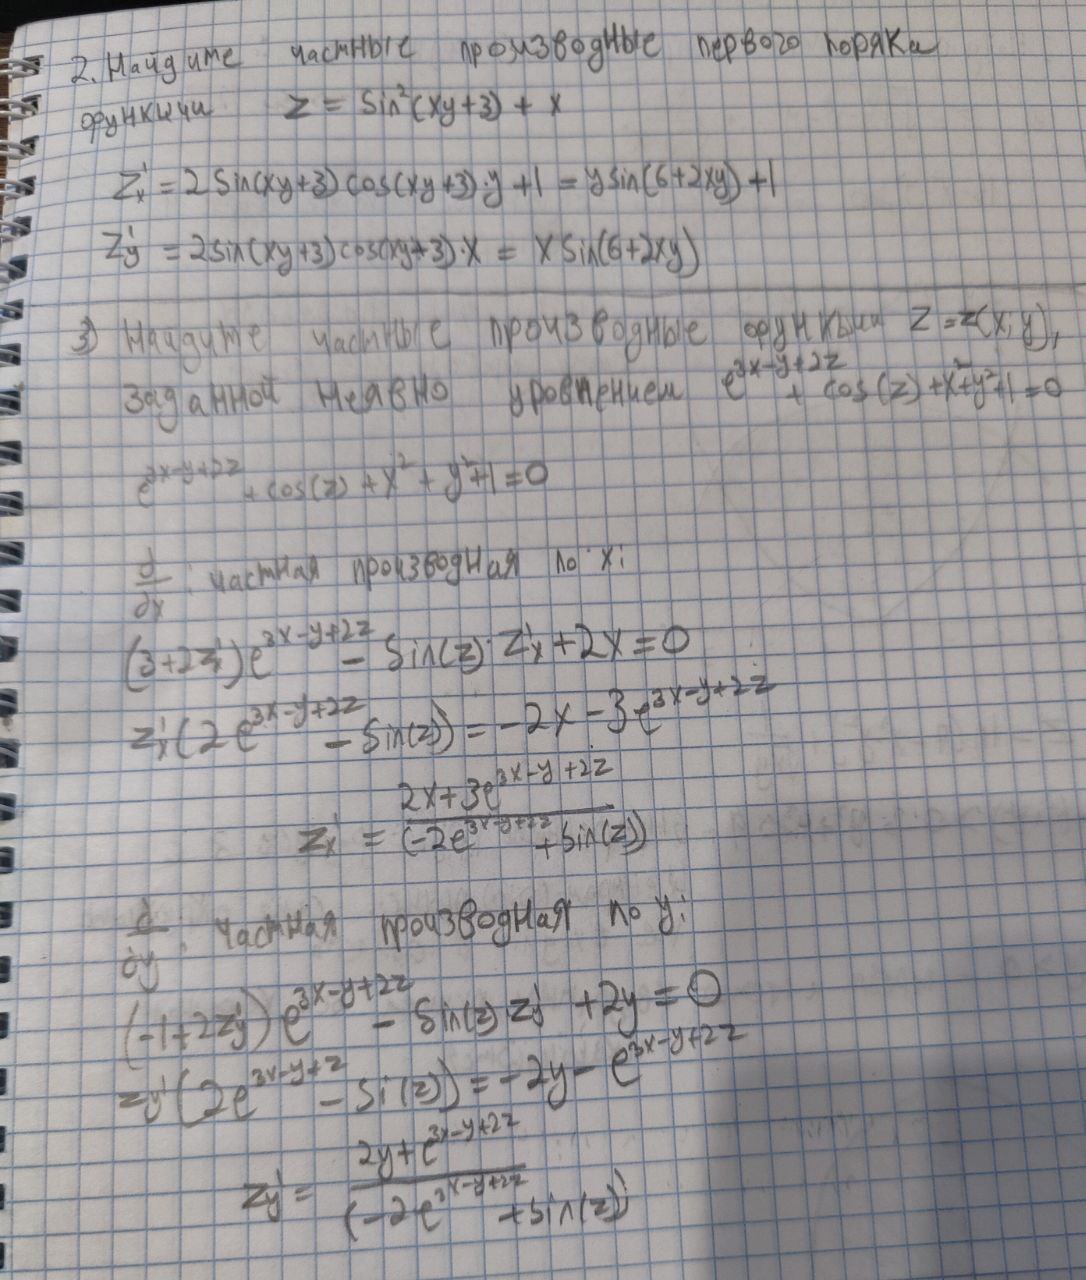 2. Найдите частные производные первого поряка
функции z = sin²(xy+3) + x
z'ₓ = 2 sin(xy+3) cos(xy+3)·y +1 = y sin(6+2xy) +1
z'y = 2sin(xy+3)cos(xy+3)·x = x sin(6+2xy)
3) Найдите частные производные функции z = z(x,y),
заданной неявно уровнением e^(3x-y+2z) + cos(z) + x²+y²+1=0
e^(3x-y+2z) + cos(z) + x² + y²+1=0
∂/∂x : частная производная по x:
(3+2z'ₓ)e^(3x-y+2z) - sin(z)·z'ₓ+2x=0
z'ₓ(2e^(3x-y+2z) - sin(z)) = -2x-3e^(3x-y+2z)
z'ₓ = (2x+3e^(3x-y+2z))/(-2e^(3x-y+2z) + sin(z))
∂/∂y : частная производная по y:
(-1+2z'y)e^(3x-y+2z) - sin(z) z'y +2y=0
z'y(2e^(3x-y+z) - si(z)) = -2y-e^(3x-y+2z)
z'y = (2y+e^(3x-y+2z))/(-2e^(3x-y+2z) +sin(z))